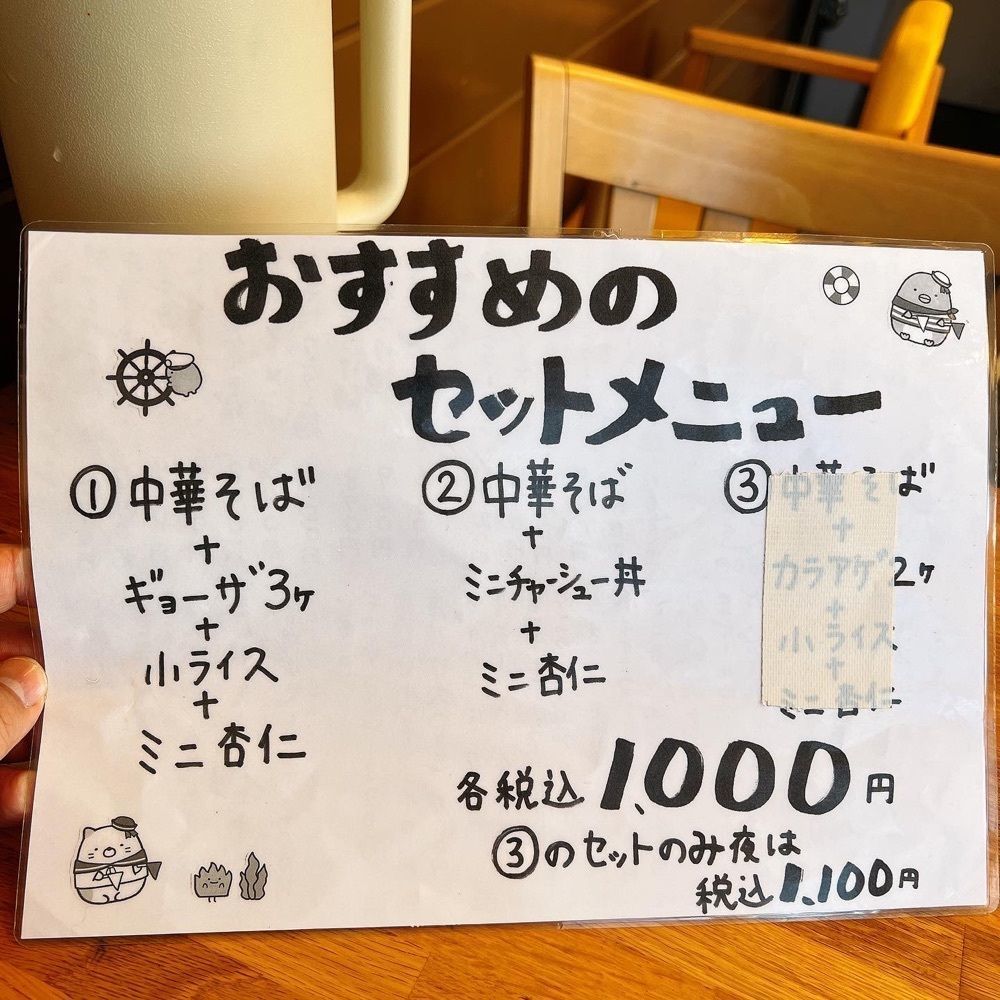 おすすめの
セットメニュー
①中華そば
+
ギョーザ3ヶ
+
小ライス
+
ミニ杏仁
②中華そば
+
ミニチャーシュー丼
+
ミニ杏仁
③中華そば
+
カラアゲ2ヶ
+
小ライス
+
ミニ杏仁
各税込1,000円
③のセットのみ夜は
税込1,100円